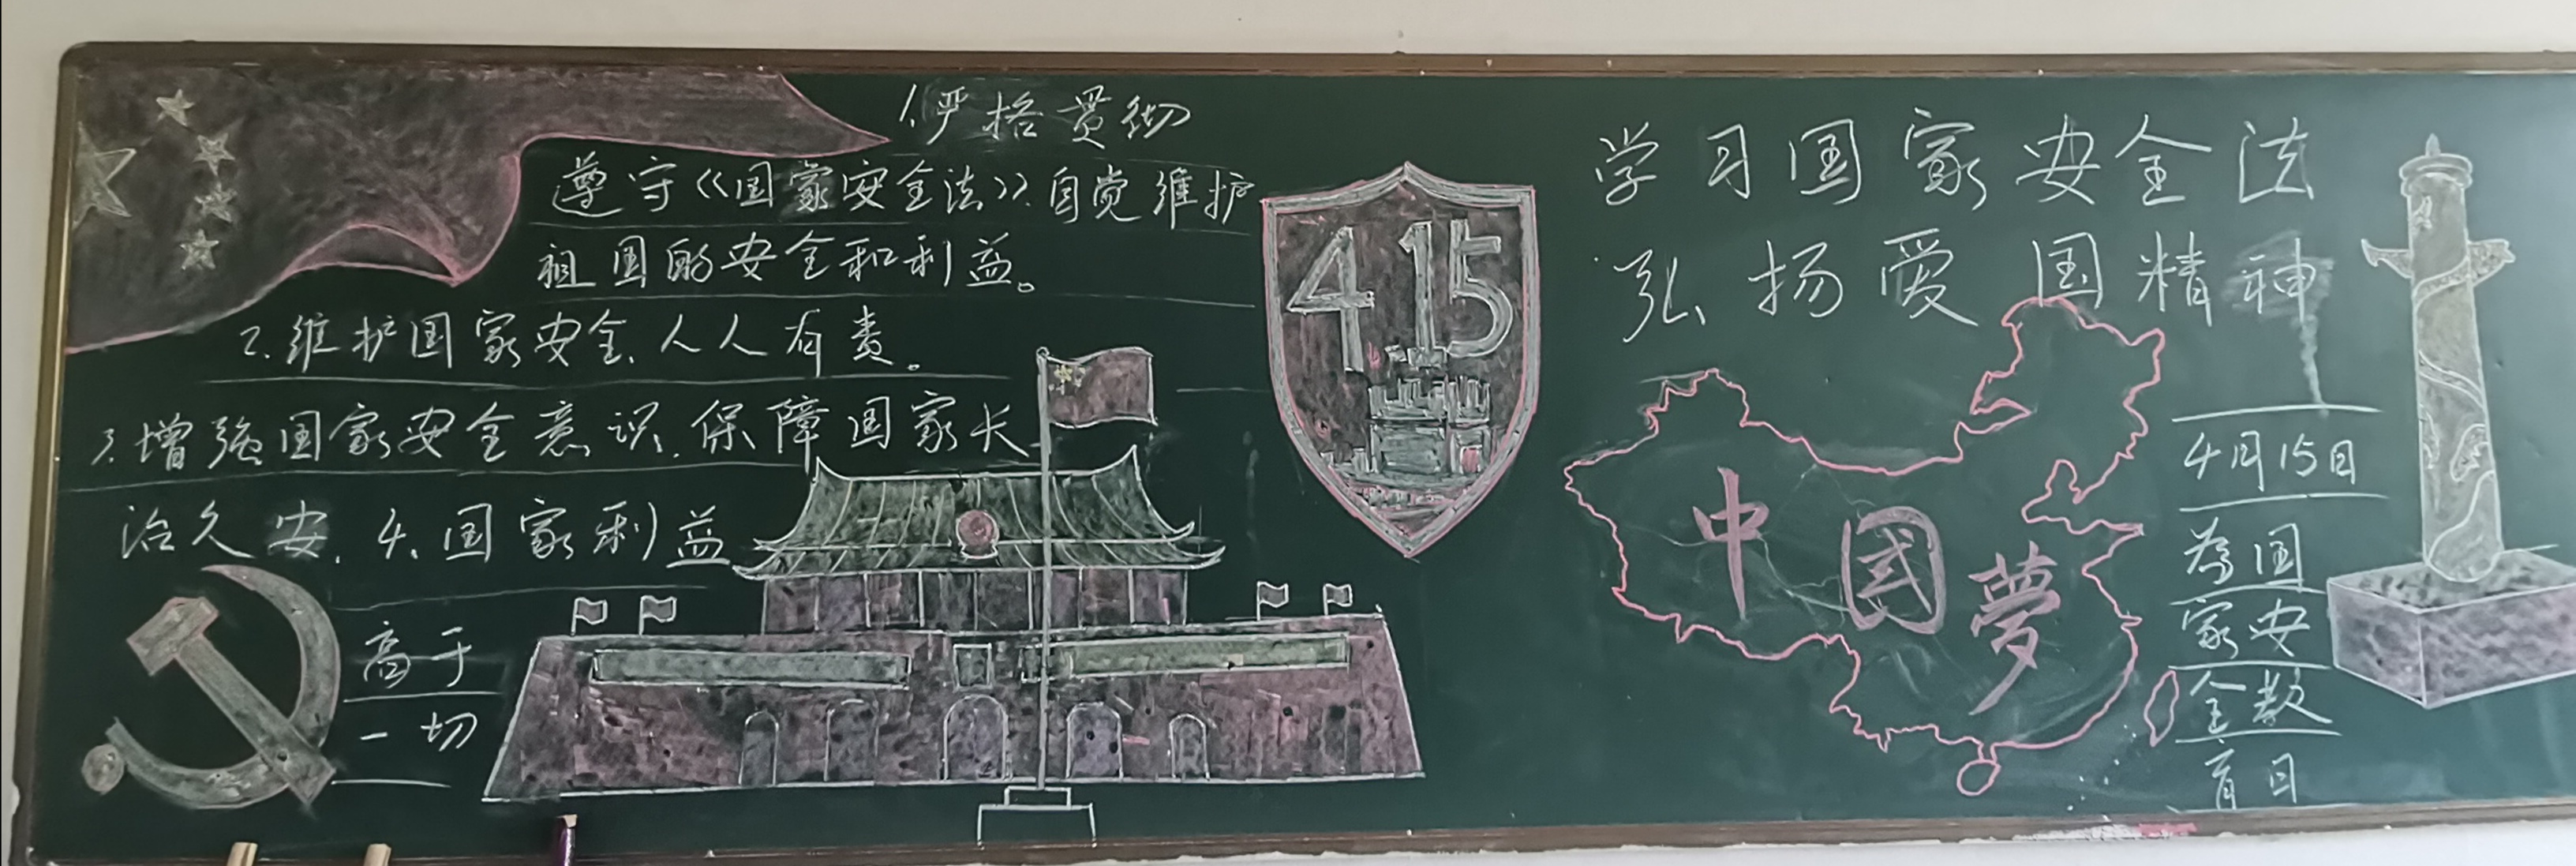 1.严格贯彻
遵守《国家安全法》.自觉维护
祖国的安全和利益。
2.维护国家安全、人人有责。
3.增强国家安全意识.保障国家长
治久安.4、国家利益
高于
一切
4.15
学习国家安全法
弘扬爱国精神
中國夢
4月15日
為国
家安
全教
育日